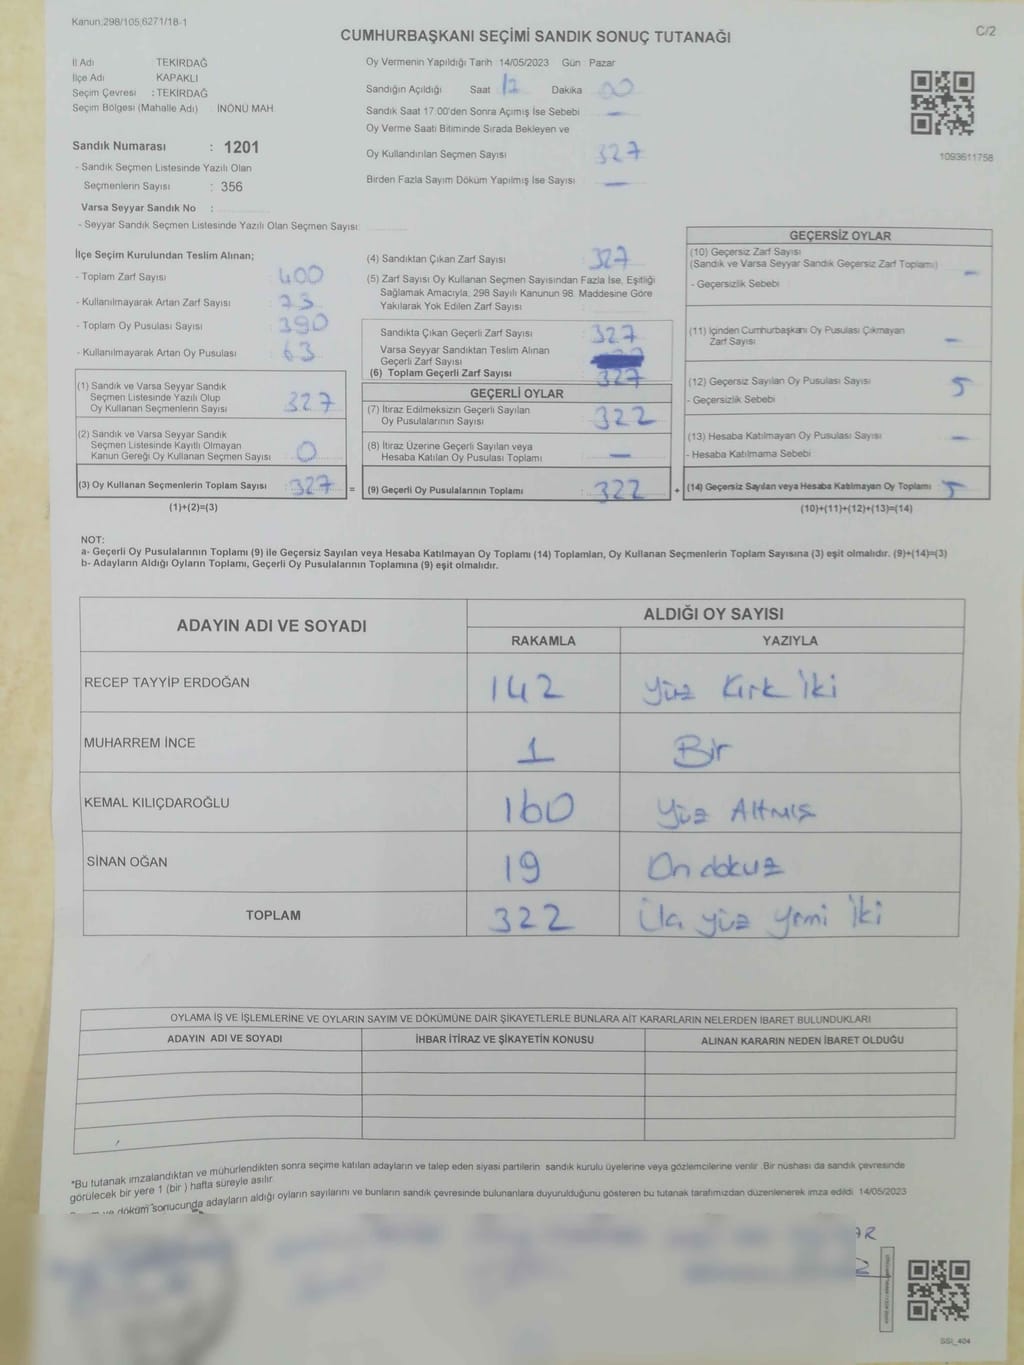 Kanun,298/105,6271/18-1
C/2
CUMHURBAŞKANI SEÇİMİ SANDIK SONUÇ TUTANAĞI
İl Adı TEKİRDAĞ
İlçe Adı KAPAKLI
Seçim Çevresi : TEKİRDAĞ
Seçim Bölgesi (Mahalle Adı) İNÖNÜ MAH.
Sandık Numarası : 1201
- Sandık Seçmen Listesinde Yazılı Olan
Seçmenlerin Sayısı : 356
Varsa Seyyar Sandık No :
- Seyyar Sandık Seçmen Listesinde Yazılı Olan Seçmen Sayısı:
Oy Vermenin Yapıldığı Tarih 14/05/2023 Gün : Pazar
Sandığın Açıldığı Saat 17 Dakika 00
Sandık Saat 17:00'den Sonra Açımış İse Sebebi —
Oy Verme Saati Bitiminde Sırada Bekleyen ve
Oy Kullandırılan Seçmen Sayısı 327
Birden Fazla Sayım Döküm Yapılmış İse Sayısı —
1093611758
İlçe Seçim Kurulundan Teslim Alınan;
- Toplam Zarf Sayısı : 400
- Kullanılmayarak Artan Zarf Sayısı : 73
- Toplam Oy Pusulası Sayısı : 390
- Kullanılmayarak Artan Oy Pusulası : 63
(1) Sandık ve Varsa Seyyar Sandık
Seçmen Listesinde Yazılı Olup
Oy Kullanan Seçmenlerin Sayısı : 327
(2) Sandık ve Varsa Seyyar Sandık
Seçmen Listesinde Kayıtlı Olmayan
Kanun Gereği Oy Kullanan Seçmen Sayısı : 0
(3) Oy Kullanan Seçmenlerin Toplam Sayısı : 327
(1)+(2)=(3)
(4) Sandıktan Çıkan Zarf Sayısı : 327
(5) Zarf Sayısı Oy Kullanan Seçmen Sayısından Fazla İse, Eşitliği
Sağlamak Amacıyla, 298 Sayılı Kanunun 98. Maddesine Göre
Yakılarak Yok Edilen Zarf Sayısı :
Sandıkta Çıkan Geçerli Zarf Sayısı : 327
Varsa Seyyar Sandıktan Teslim Alınan
Geçerli Zarf Sayısı :
(6) Toplam Geçerli Zarf Sayısı : 327
GEÇERLİ OYLAR
(7) İtiraz Edilmeksizin Geçerli Sayılan
Oy Pusulalarının Sayısı : 322
(8) İtiraz Üzerine Geçerli Sayılan veya
Hesaba Katılan Oy Pusulası Toplamı : —
= (9) Geçerli Oy Pusulalarının Toplamı : 322
GEÇERSİZ OYLAR
(10) Geçersiz Zarf Sayısı
(Sandık ve Varsa Seyyar Sandık Geçersiz Zarf Toplamı:) —
- Geçersizlik Sebebi
(11) İçinden Cumhurbaşkanı Oy Pusulası Çıkmayan
Zarf Sayısı —
(12) Geçersiz Sayılan Oy Pusulası Sayısı 5
- Geçersizlik Sebebi
(13) Hesaba Katılmayan Oy Pusulası Sayısı —
- Hesaba Katılmama Sebebi
+ (14) Geçersiz Sayılan veya Hesaba Katılmayan Oy Toplamı : 5
(10)+(11)+(12)+(13)=(14)
NOT:
a- Geçerli Oy Pusulalarının Toplamı (9) ile Geçersiz Sayılan veya Hesaba Katılmayan Oy Toplamı (14) Toplamları, Oy Kullanan Seçmenlerin Toplam Sayısına (3) eşit olmalıdır. (9)+(14)=(3)
b- Adayların Aldığı Oyların Toplamı, Geçerli Oy Pusulalarının Toplamına (9) eşit olmalıdır.
ADAYIN ADI VE SOYADI ALDIĞI OY SAYISI
RAKAMLA YAZIYLA
RECEP TAYYİP ERDOĞAN 142 Yüz Kırk İki
MUHARREM İNCE 1 Bir
KEMAL KILIÇDAROĞLU 160 Yüz Altmış
SİNAN OĞAN 19 On dokuz
TOPLAM 322 Üç yüz yirmi iki
OYLAMA İŞ VE İŞLEMLERİNE VE OYLARIN SAYIM VE DÖKÜMÜNE DAİR ŞİKAYETLERLE BUNLARA AİT KARARLARIN NELERDEN İBARET BULUNDUKLARI
ADAYIN ADI VE SOYADI İHBAR İTİRAZ VE ŞİKAYETİN KONUSU ALINAN KARARIN NEDEN İBARET OLDUĞU
"Bu tutanak imzalandıktan ve mühürlendikten sonra seçime katılan adayların ve talep eden siyasi partilerin sandık kurulu üyelerine veya gözlemcilerine verilir. Bir nüshası da sandık çevresinde
görülecek bir yere 1 (bir) hafta süreyle asılır.
ve döküm sonucunda adayların aldığı oyların sayılarını ve bunların sandık çevresinde bulunanlara duyurulduğunu gösteren bu tutanak tarafımızdan düzenlenerek imza edildi. 14/05/2023
SSI_404